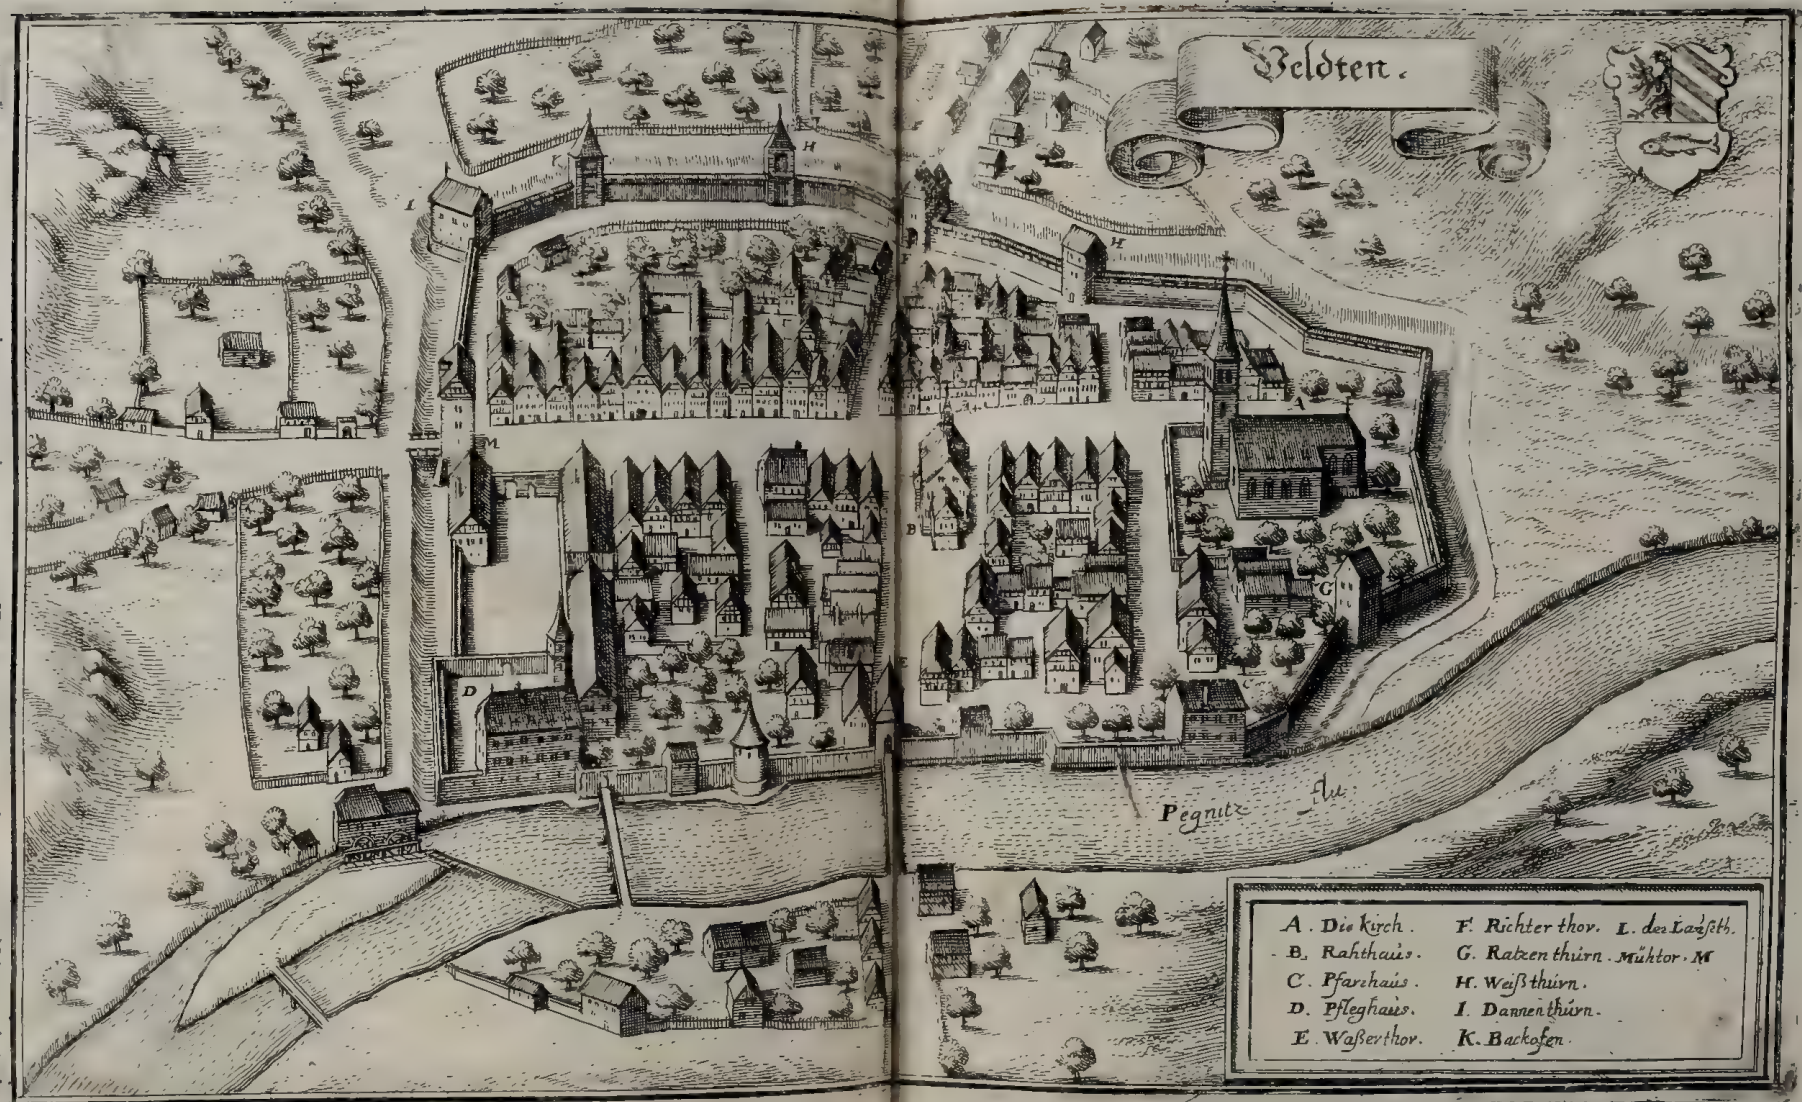 Veldten.
K
H
I
H
F
A
M
B
G
E
D
C
Pegnitz flu:
A. Die kirch.
B. Rahthaus.
C. Pfarzhaus.
D. Pfleghaus.
E. Waßerthor.
F. Richter thor.
G. Ratzen thurn.
H. Weißthurn.
I. Dannen thurn.
K. Backofen.
L.
Mühtor. M